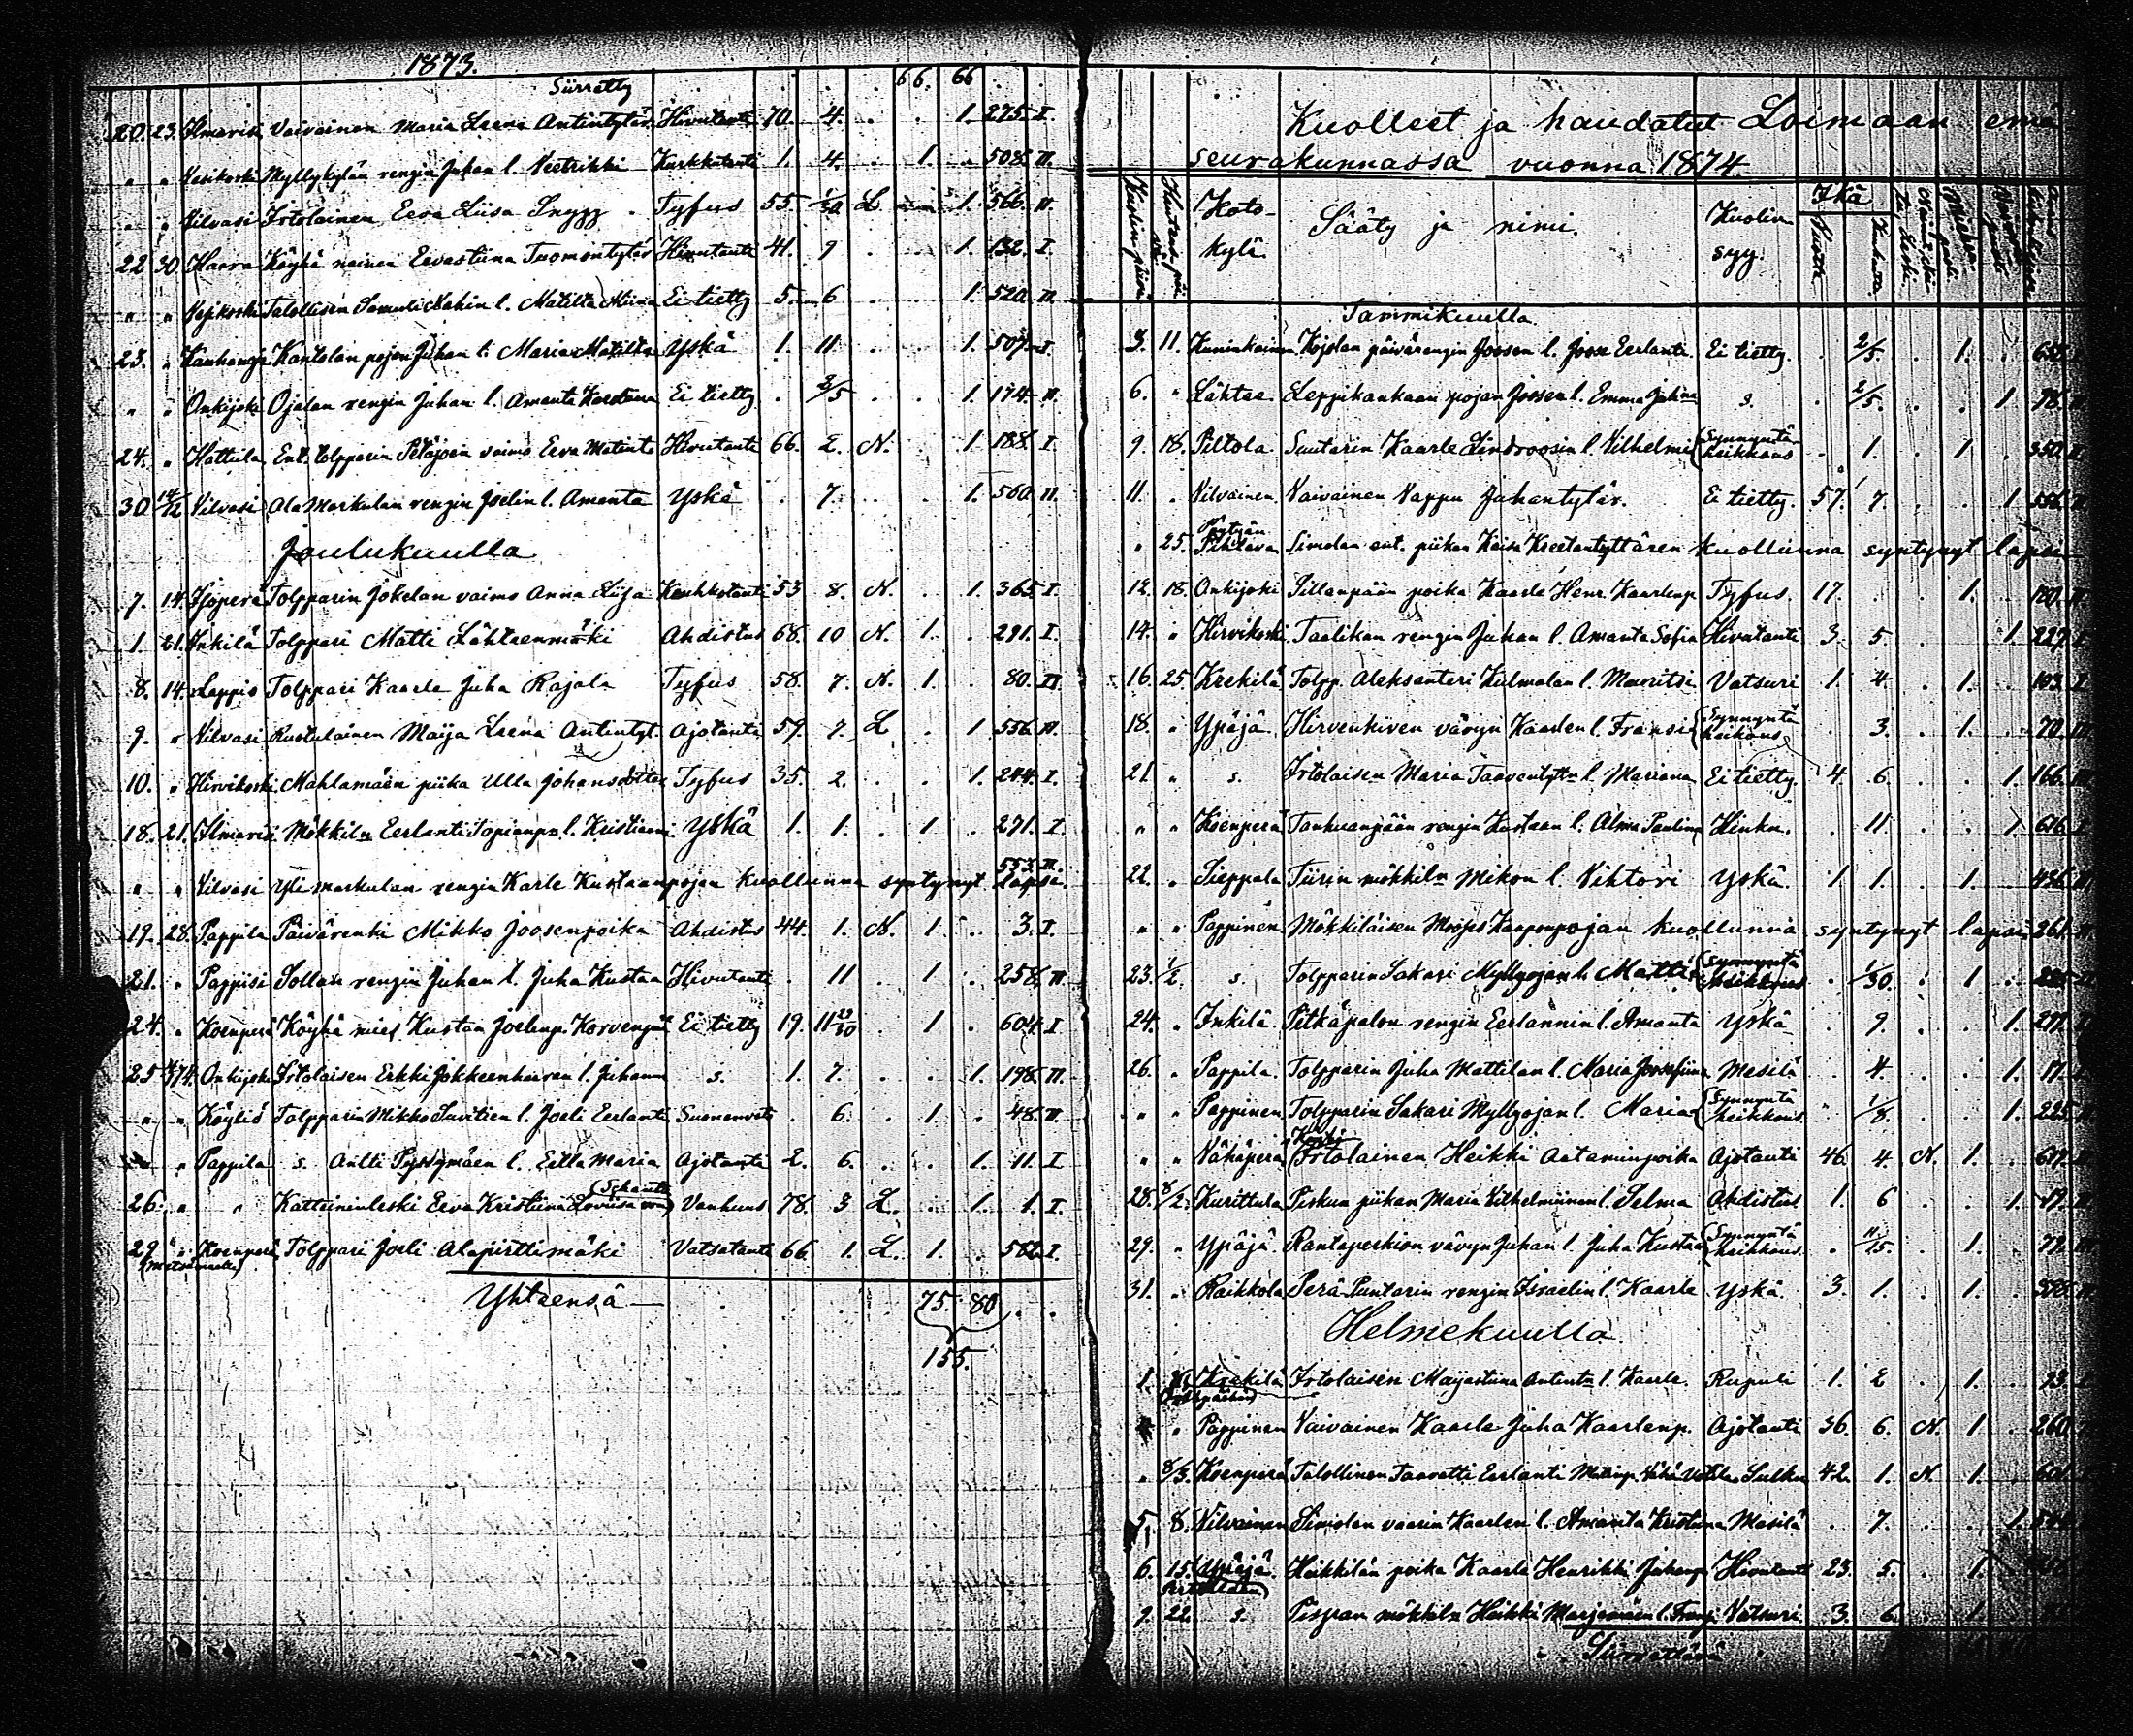 1873.
Siirretty 66. 66
20. 23. Ilmarisi Vaivainen Maria Leena Antintytär Hivutauti 70. 4. 1. 275. I.
" " Vesikoski Myllykylän rengin Juhan l. Veetrikki Kurkkutauti 1. 4. 1. 508. II.
" " Vilvasi Irtolainen Eeva Liisa Snygg Tyfus 55. 1/30 L 1. 566. II.
22 30. Haara Köyhä nainen Eevastiina Tuomontytär Hivutauti 41. 9 1. 132. I.
" " Vesikoski Talollisen Samuli Nahin l. Matilta Miina Ei tietty 5. 6 1. 520. II.
23. " Kauhanoja Kantolan pojan Juhan l. Maria Matilta Yskä 1. 11 1. 507. I.
" " Onkijoki Ojalan rengin Juhan l. Amanta Ei tietty . 2/5 1. 174. II.
24. " Hattula Ent. tolpparin Petäjoen vaimo Eeva Matint. Hivutauti 66. 2. N. 1. 188. I.
30. 14/12 Vilvasi Ala Markulan rengin Joelin l. Amanta Yskä . 7. 1. 560. II.
Joulukuulla
7. 14. Isoperä Tolpparin Jokelan vaimo Anna Liisa Keuhkotauti 53 8. N. 1. 365. I.
1. 21. Inkilä Tolppari Matti Lähteenmäki Ahdistus 68. 10 N. 1. 291. I.
8. 14. Lappio Tolppari Kaarle Juha Rajala Tyfus 58. 7. N. 1. 80. II.
9. " Vilvasi Ruotulainen Maija Leena Antintyt. Ajotauti 59. 7. L 1 556. II.
10. " Hirvikoski Mahlamäen piika Ulla Johansdotter Tyfus 35. 2. 1. 244. I.
18. 21. Ilmarisi Mökkiln Eerlanti Tapionp. l. Kristiani Yskä 1. 1. 1 271. I.
" " Vilvasi Yli markulan rengin Karle Kustaanpojan kuollunna syntynyt lapsi. 553. II.
19. 28. Pappila Päivärenki Mikko Joosenpoika Ahdistus 44. 1. N. 1. 3. I.
21. " Pappisi Sollan rengin Juhan l. Juha Kustaa Hivutauti . 11 1. 258. III.
24. " Koenperä Köyhä mies Kustaa Joelinp. Korvenpää Ei tietty 19. 11 29/30 1. 604. I.
25 Onkijoki Irtolaisen Erkki l. Juhana s. 1. 7. 1. 198. II.
" " Köyliö Tolpparin Mikko Suvitien l. Joeli Eerlanti Suonenveto . 6. 1. 48. II.
" " Pappila s. Antti Pysymäen l. Eilla Maria Ajotauti 2. 6. 1. 11. I
26. " " Katteininleski Eeva Kristiina Lovisa Vanhuus 78. 3 L. 1. 1. I.
29. " Koenperä Tolppari Joeli Alapirttimäki Vatsatauti 66. 1. L. 1. 562. I.
(Metsämaalla)
Yhteensä 75. 80
155.
Kuolleet ja haudatut Loimaan emä
seurakunnassa vuonna 1874.
Koto-kylä. Sääty ja nimi. Kuolin syy. Ikä
Tammikuulla.
3. 11. Kojolan päivärengin Joosen l. Joose Eerlanti Ei tietty. 2/5. 1.
6. " Lähtee Leppikankaan pojan Joosen l. Emma s. 2/5. 1 78.
9. 18. Piltola Suutarin Kaarle Lindroosin l. Vilhelmi Synnyntä heikkous 1. 1 350.
11. " Vilvainen Vaivainen Vappu Juhantytär. Ei tietty. 57. 7. 1. 556.
" 25. Pöytyän Pihlava Simolan ent. piikan Kaisa Kreetantyttären kuollunna syntynyt lapsi
12. 18. Onkijoki Pillanpään poika Kaarle Henr. Kaarlenp. Tyfus. 17. 1. 180.
14. " Hirvikoski Taalikan rengin Juhan l. Amanta Sofia Hivutauti 3. 5. 1. 229.
16. 25. Krekilä Tolpp. Aleksanteri Kulmalan l. Mauritsi Vatsuri 1. 4 1. 103.
18. " Ypäjä Hirvenkiven vävyn Kaarlen l. Fransi Synnyntä heikkous 3. 1. 70.
21 " s. Irtolaisen Maria Taaventytn l. Mariana Ei tietty. 4. 6. 1. 166.
" " Koenperä Tankuanpään rengin Kustaan l. Alma Paulina Hinku. . 11 1 616.
22. " Sieppala Tiirin mökkiln Mikon l. Vihtori Yskä. 1 1. 1. 436.
" " Pappinen Mökkiläisen Kaaponpojan kuollunna syntynyt lapsi 261.
23. 1/2 s. Tolpparin Sakari Myllyojan l. Matti Synnyntä heikkous . 1/30. 1
24. " Inkilä Pitkäpalon rengin Eerlannin l. Amanta Yskä . 9. 1.
26. " Pappila. Tolpparin Juha Mattilan l. Maria Josefiina Mesilä . 4. 1. 17.
" " Pappinen Tolpparin Sakari Myllyojan l. Maria Synnyntä heikkous . 1/8. 1. 225.
" " Vähäperä Irtolainen Heikki Aataminpoika Ajotauti 46. 4. N. 1. 617.
28. 8/2. Kurittula Piskun piikan Maria Vilhelmiinan l. Selma Ahdistus 1. 6 1. 19.
29. " Ypäjä Rantaperkion vävyn Juhan l. Juha Kustaa Synnyntä heikkous . 11/15. 1. 79.
31. " Raikkola Perä Puntarin rengin Israelin l. Kaarle Yskä. 3. 1. 1.
Helmekuulla.
1. Krekilä Irtolaisen Maijastiina Antintn l. Kaarle. Rupuli 1. 2 1. 93.
" " Pappinen Vaivainen Kaarle Juha Kaarlenp. Ajotauti 36. 6. N. 1 260.
" 8/3. Koenperä Talollinen Taavetti Eerlanti Matinp. Sulku 42. 1. N 1. 601.
5. 8. Vilvainen Simolan vaarin Kaarlen l. Amanta Kristiina Mesilä . 7. 1.
6. 15. Ypäjä. Heikkilän poika Kaarle Henrikki Juhanp. Hivutauti 23. 5. 1.
9. 22. s. mökkiln Heikki l. Vatsuri 3. 6. 1.
Siirrettävä